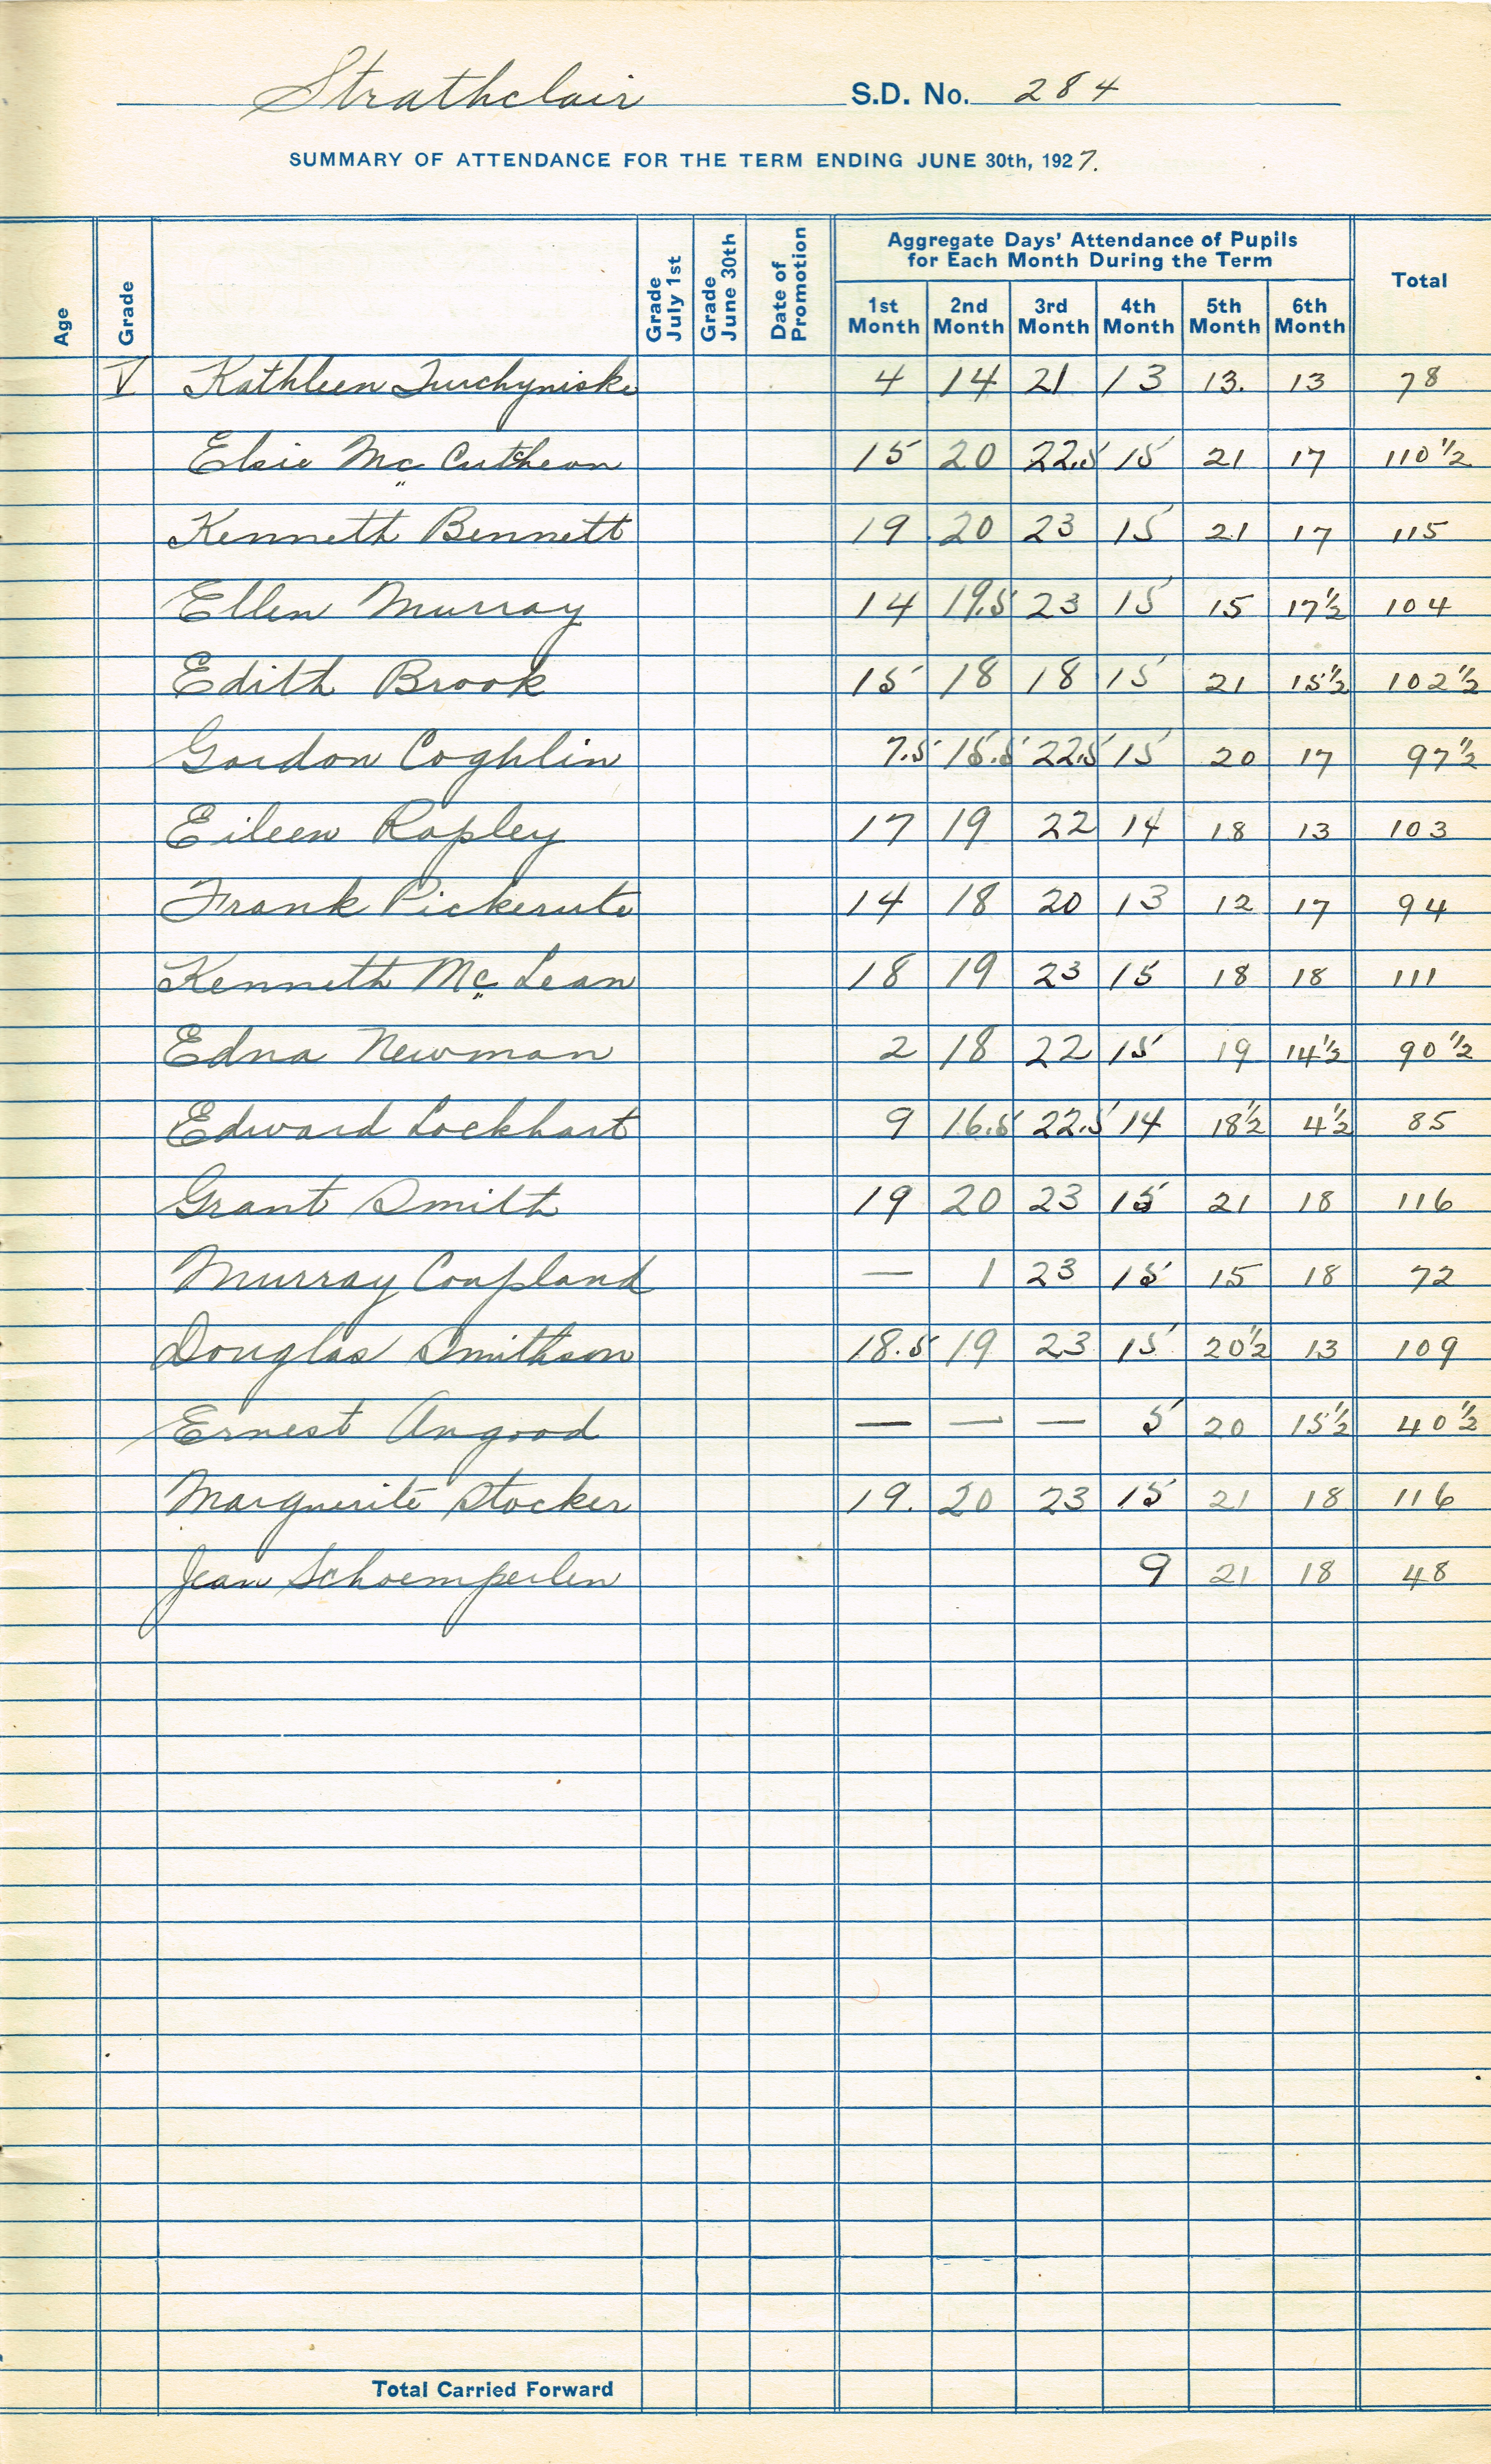 Strathclair S.D. No. 284
SUMMARY OF ATTENDANCE FOR THE TERM ENDING JUNE 30th, 1927.
Age Grade Grade July 1st Grade June 30th Date of Promotion Aggregate Days' Attendance of Pupils for Each Month During the Term Total
1st Month 2nd Month 3rd Month 4th Month 5th Month 6th Month
V Kathleen Turchyniske 4 14 21 13 13. 13 78
Elsie Mc Cutcheon 15 20 22.5 15 21 17 110 1/2
Kenneth Bennett 19 20 23 15 21 17 115
Ellen Murray 14 19.5 23 15 15 17 1/2 104
Edith Brook 15 18 18 15 21 15 1/2 102 1/2
Gordon Coghlin 7.5 15.5 22.5 15 20 17 97 1/2
Eileen Rapley 17 19 22 14 18 13 103
Frank 14 18 20 13 12 17 94
Kenneth Mc Lean 18 19 23 15 18 18 111
Edna Newman 2 18 22 15 19 14 1/2 90 1/2
Edward Lockhart 9 16.5 22.5 14 18 1/2 4 1/2 85
Grant Smith 19 20 23 15 21 18 116
Murray Coupland — 1 23 15 15 18 72
Douglas Smithson 18.5 19 23 15 20 1/2 13 109
Ernest Angood — — — 5 20 15 1/2 40 1/2
Marguerite Stocker 19. 20 23 15 21 18 116
Jean Schoemperlen 9 21 18 48
Total Carried Forward